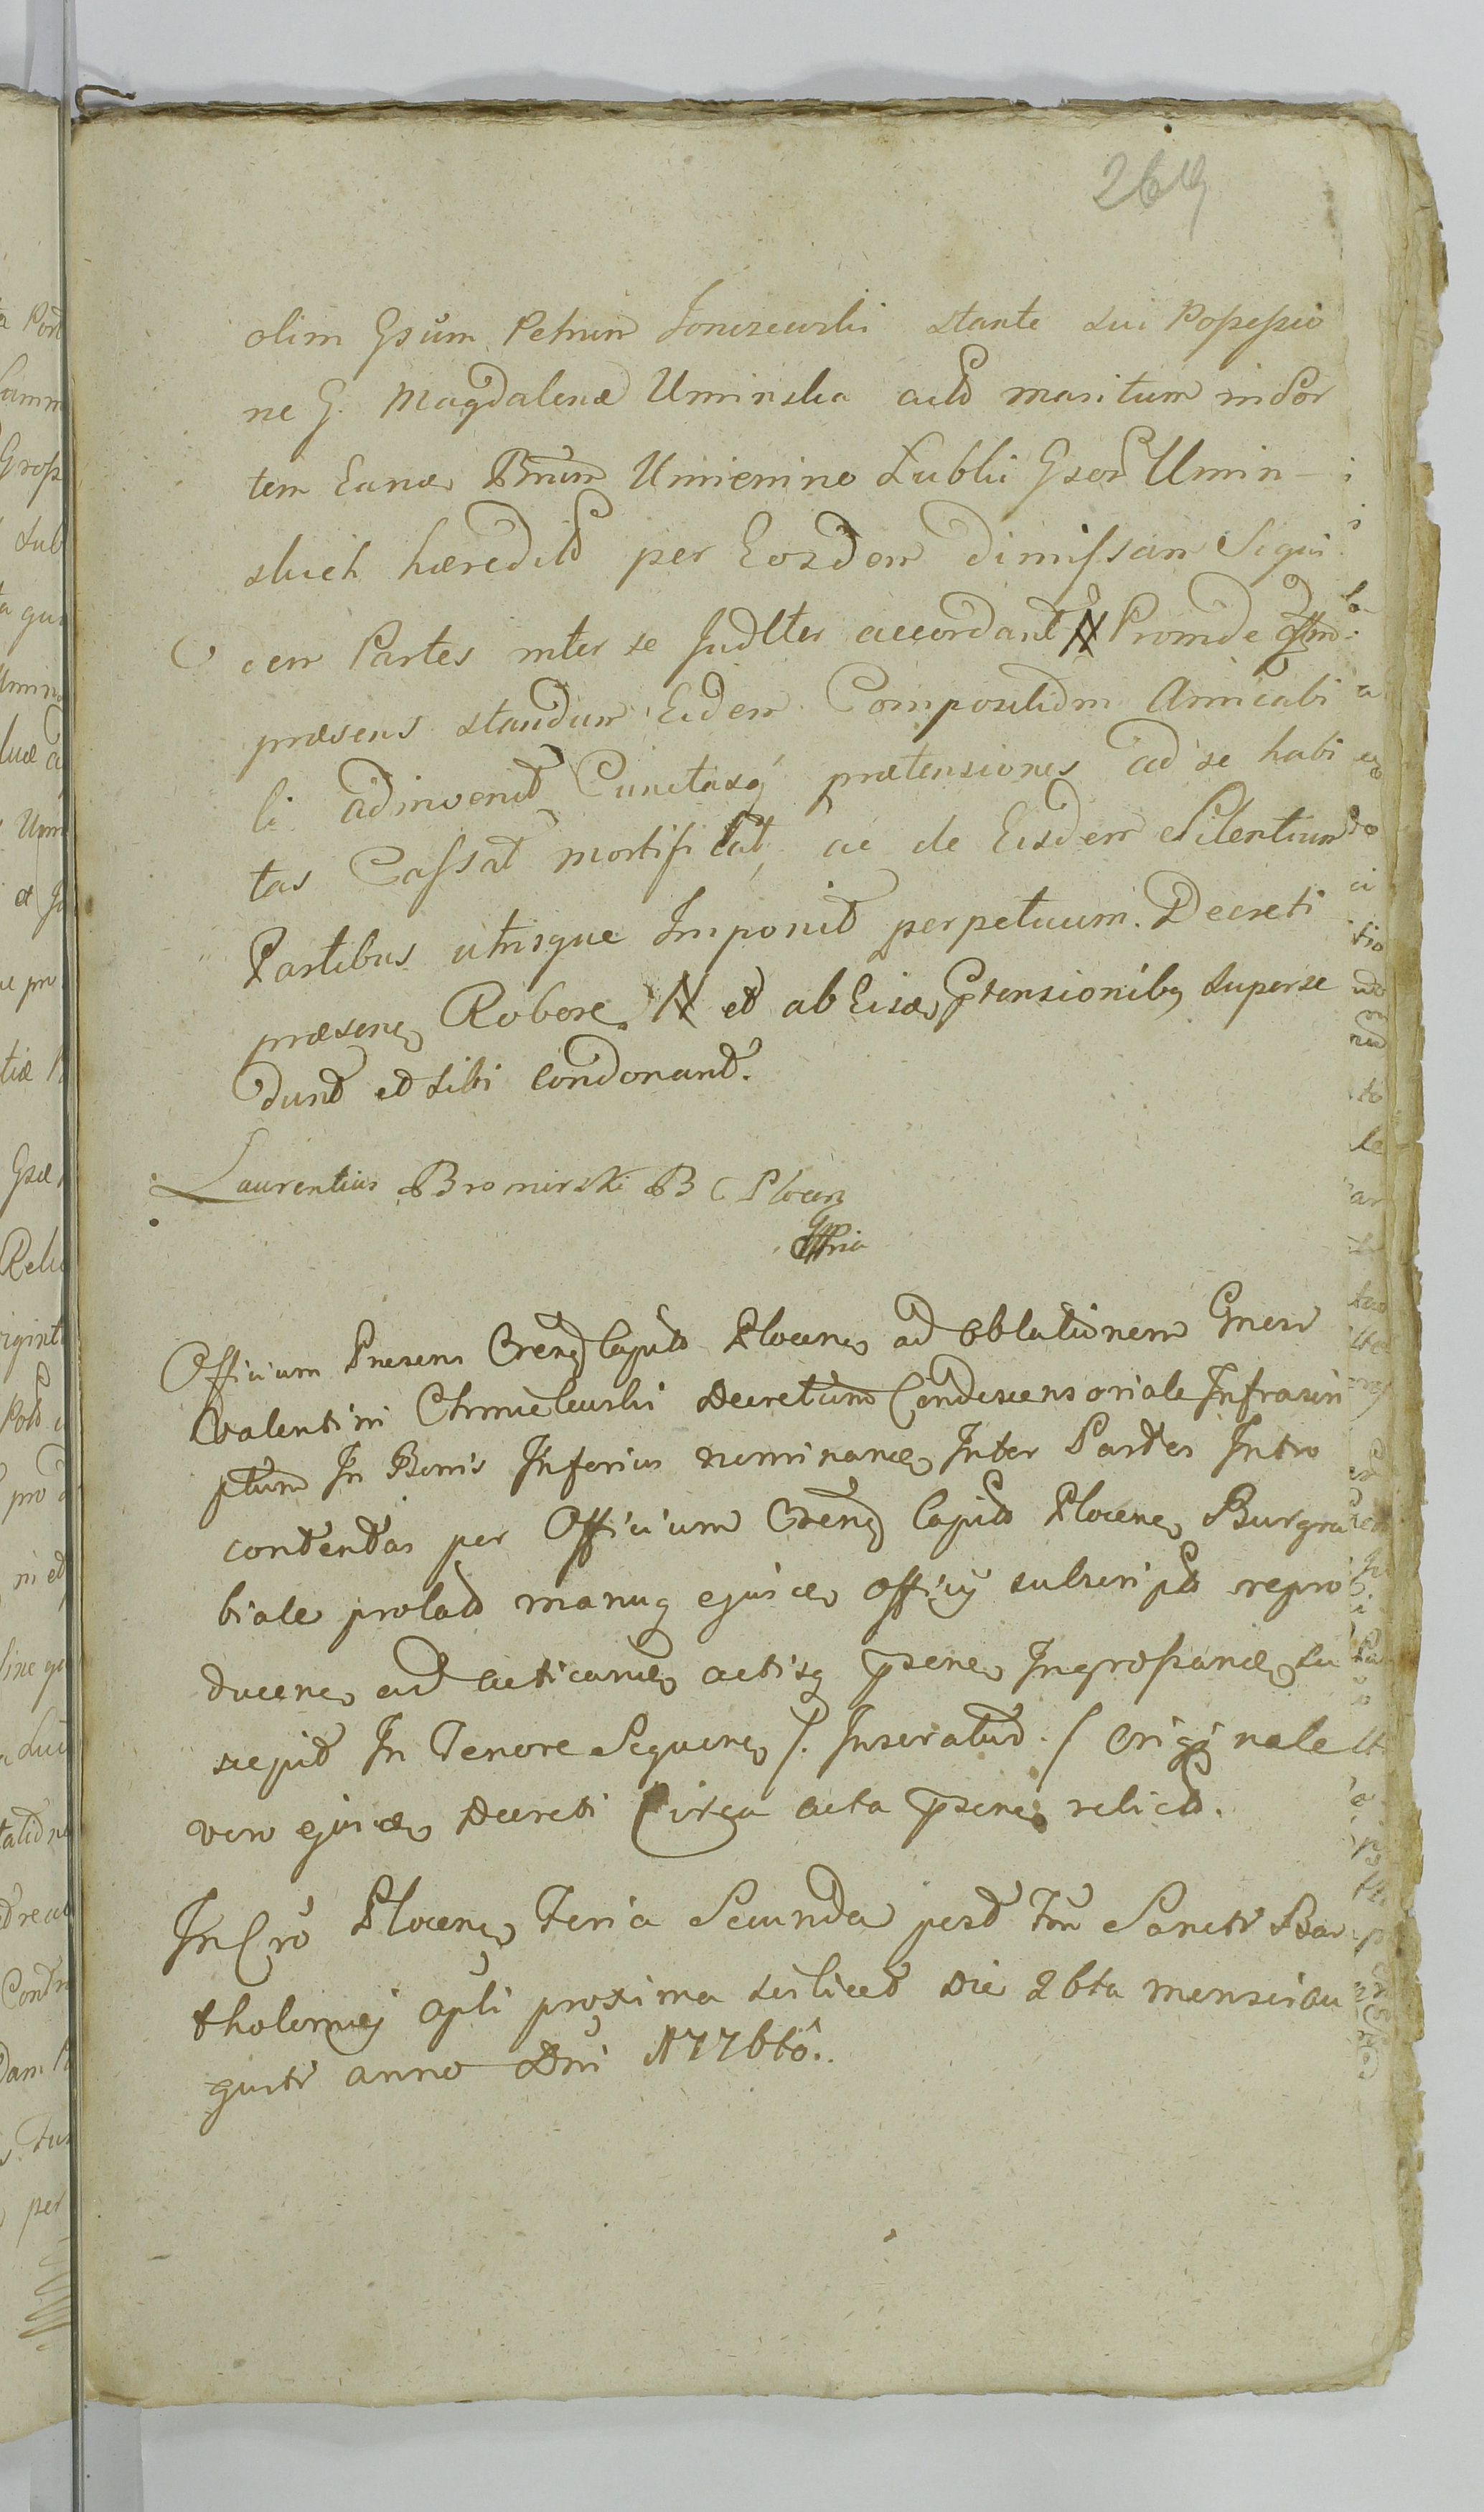 269
olim Gsum Petrum Joniszewski stante sui Possessio
ne G. Magdalenæ Uminska actd maritum in Sor
tem Eand Bnum Umienino Lubki Gsor Umin-
skich hæredit per Eosdem dimissam Siqui
dem Partes inter se Judlter accordant N Proinde
præsens standum Eidem Compositioni Amicabi
li adinvenit Cunctasq prætensiones ad se habi
tas Cassat mortificat, ac de Eisdem Silentium
Partibus utrisque Imponit perpetuum. Decreti
præsens Robore. N et ab Eisd ptensionibq superse
dunt et sibi condonant.
Laurentius Bromirski B C Plocen
mpria
Officium Præsens Crens Capit Plocens ad oblationem Gnesi
Valentini Chmielewski Decretum Condescensoriale Infrascri
ptum In Bonis Inferius nominand Inter Partes Intro
contentas per Officium Crens Capit Plocens Burgra
biale prolat manuq ejusd officij subscript repro
ducens ad acticand actisq psens Ingrossand su
scepit In Tenore Sequens /. Inseratur ./ Originale
vero ejusd Decreti Circa acta psens relict.
In Cro Plocens Feria Secunda post Ftm Sancti Bar
tholomej apli proxima scilicet Die 26ta mensis Au
gusti anno Dni 1776to.